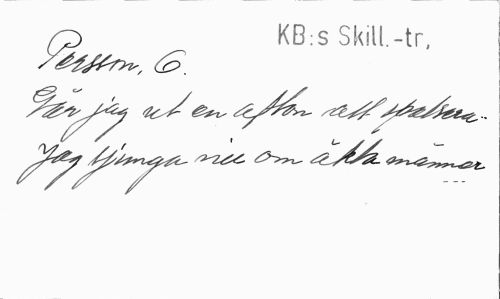 KB:s Skill.-tr,
Persson, C.
Går jag ut en afton att spatsera
Jag sjunga vill om äkta männer